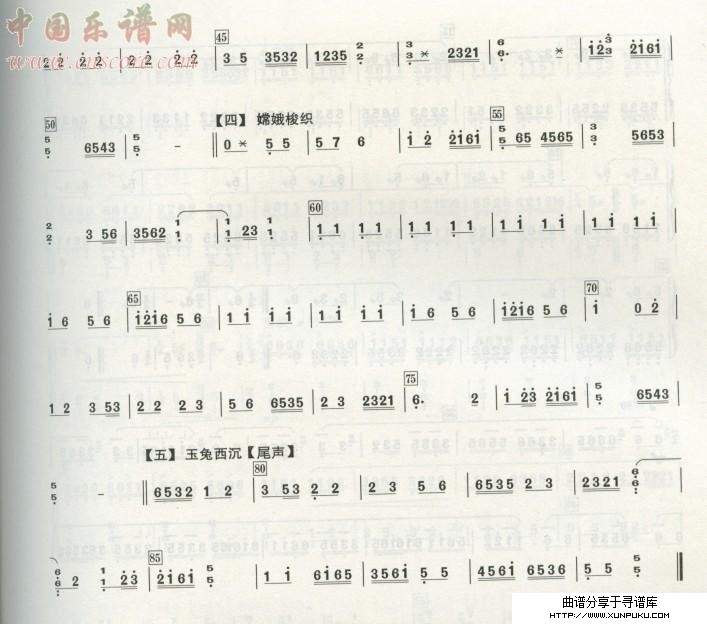 中国乐谱网
www.cnscore.com
45
2 2 2 2 | 2 2 2 2 | 3 5 3532 | 1235 2 2 | 3 3 * 2321 | 6 6. * | i 2 3 3 2 i 6 i
50 【四】 嫦娥梭织 55
5 5 6543 | 5 5 - || 0 * 5 5 | 5 7 6 | i 2 2 i 6 i | 5 5 65 4565 | 3 3 5653
60
2 2 3 56 | 3562 1 1 | 1 23 1 1 | 1 1 1 1 | i i i i | 1 1 1 1 | 1 i 1 i | 1 i 1 i
65 70
i 6 5 6 | i 2 i 6 5 6 | i i i i | i i i i | i 6 5 6 | i 2 i 6 5 6 | i 0 2
75
1 2 3 53 | 2 2 2 3 | 5 6 6535 | 2 3 2321 | 6. 2 | i 2 3 2 i 6 i | 5 5 6543
【五】 玉兔西沉【尾声】 80
5 5 - || 6532 1 2 | 3 53 2 2 | 2 3 5 6 | 6535 2 3 | 2321 6 6 6
85
6 6 6 2 1 1 2 3 | 2 i 6 i 5 5 | i i 6 i 6 5 | 3 5 6 i 5 5 | 4561 6536 | 5 5 -
曲谱分享于寻谱库
WWW.XUNPUKU.COM